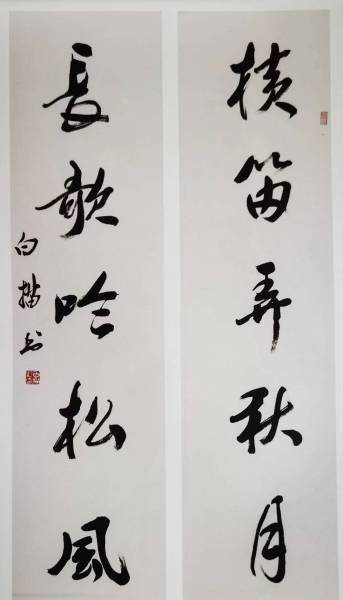 横笛弄秋月
長歌吟松風
白描书